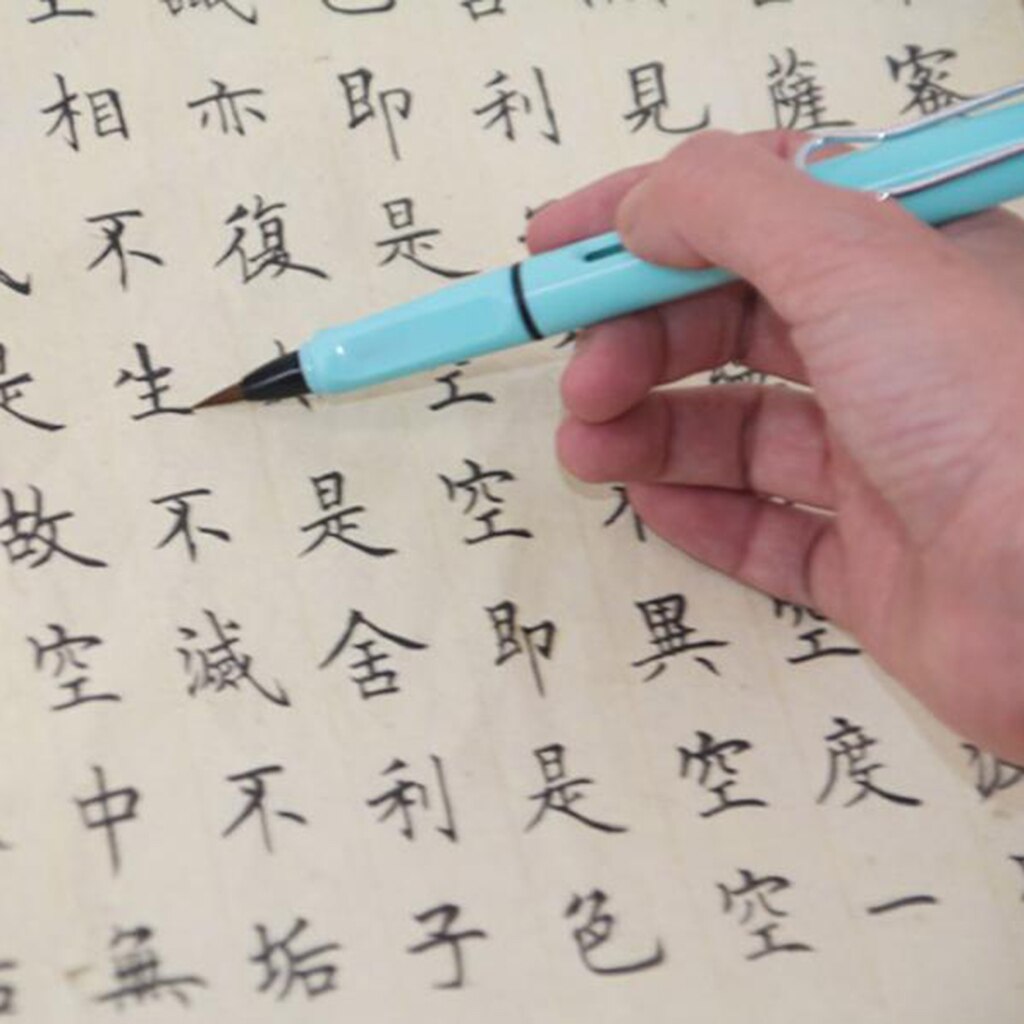 密
薩
見空度一
舍利不異空空
色即是空空即是色
識亦復是舍利子
空相不生不滅不垢
是故空中無